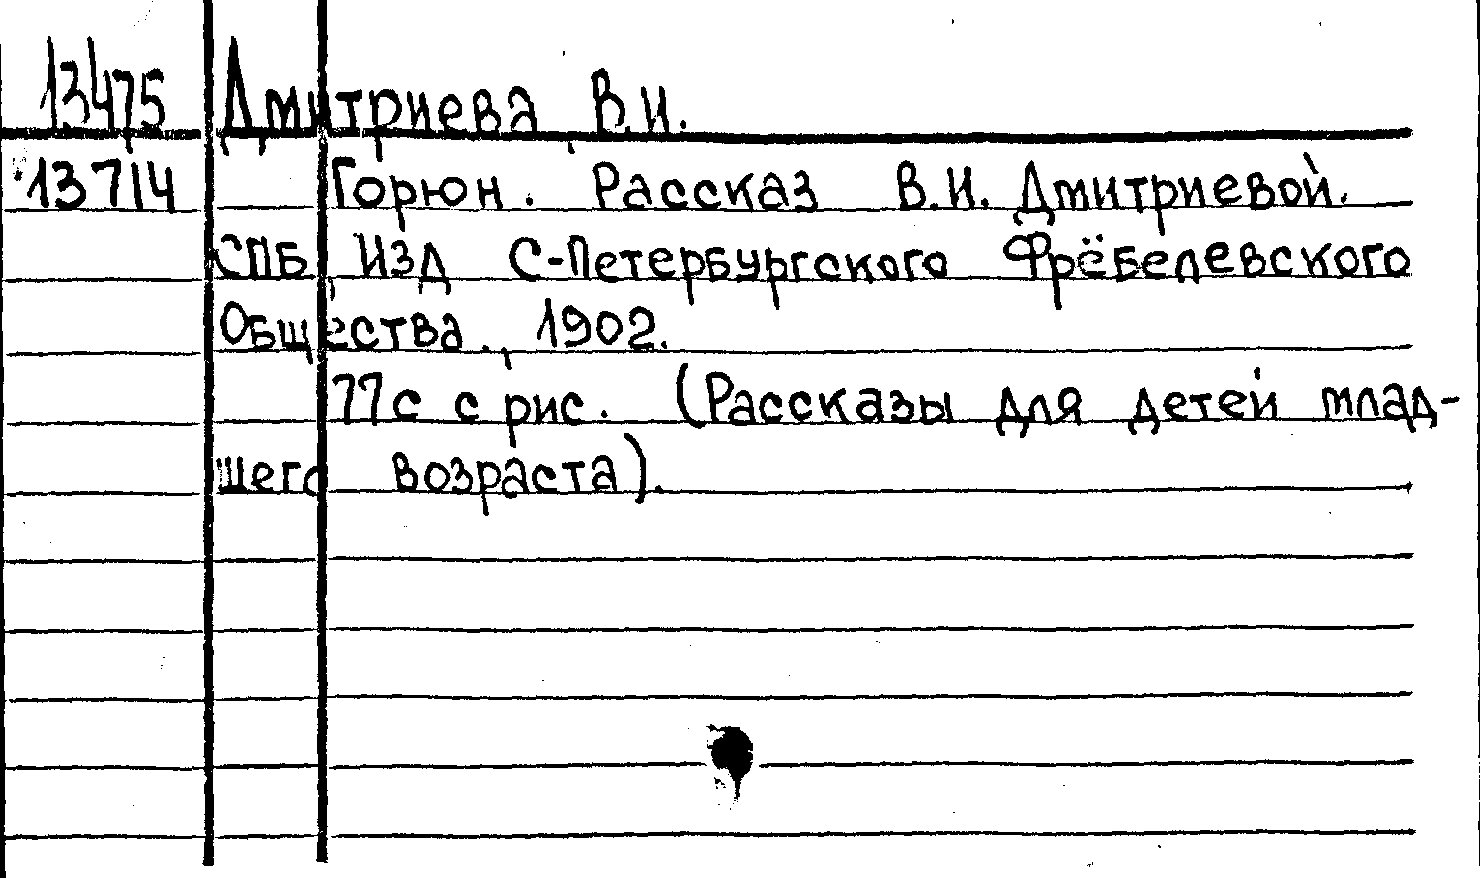 13475 Дмитриева, В.И.
13714 Горюн. Рассказ В.И. Дмитриевой.
СПБ, ИЗД С-Петербургского Фрёбелевского
Общества., 1902.
77с с рис. (Рассказы для детей млад-
шего возраста).